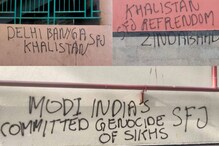 DELHI BANNGA SFJ
KHALISTAN
KHALISTAN
SFJ REFRENDUM
ZINDABAAD
MODI INDIA'S
COMMITTED GENOCIDE SFJ
OF SIKHS